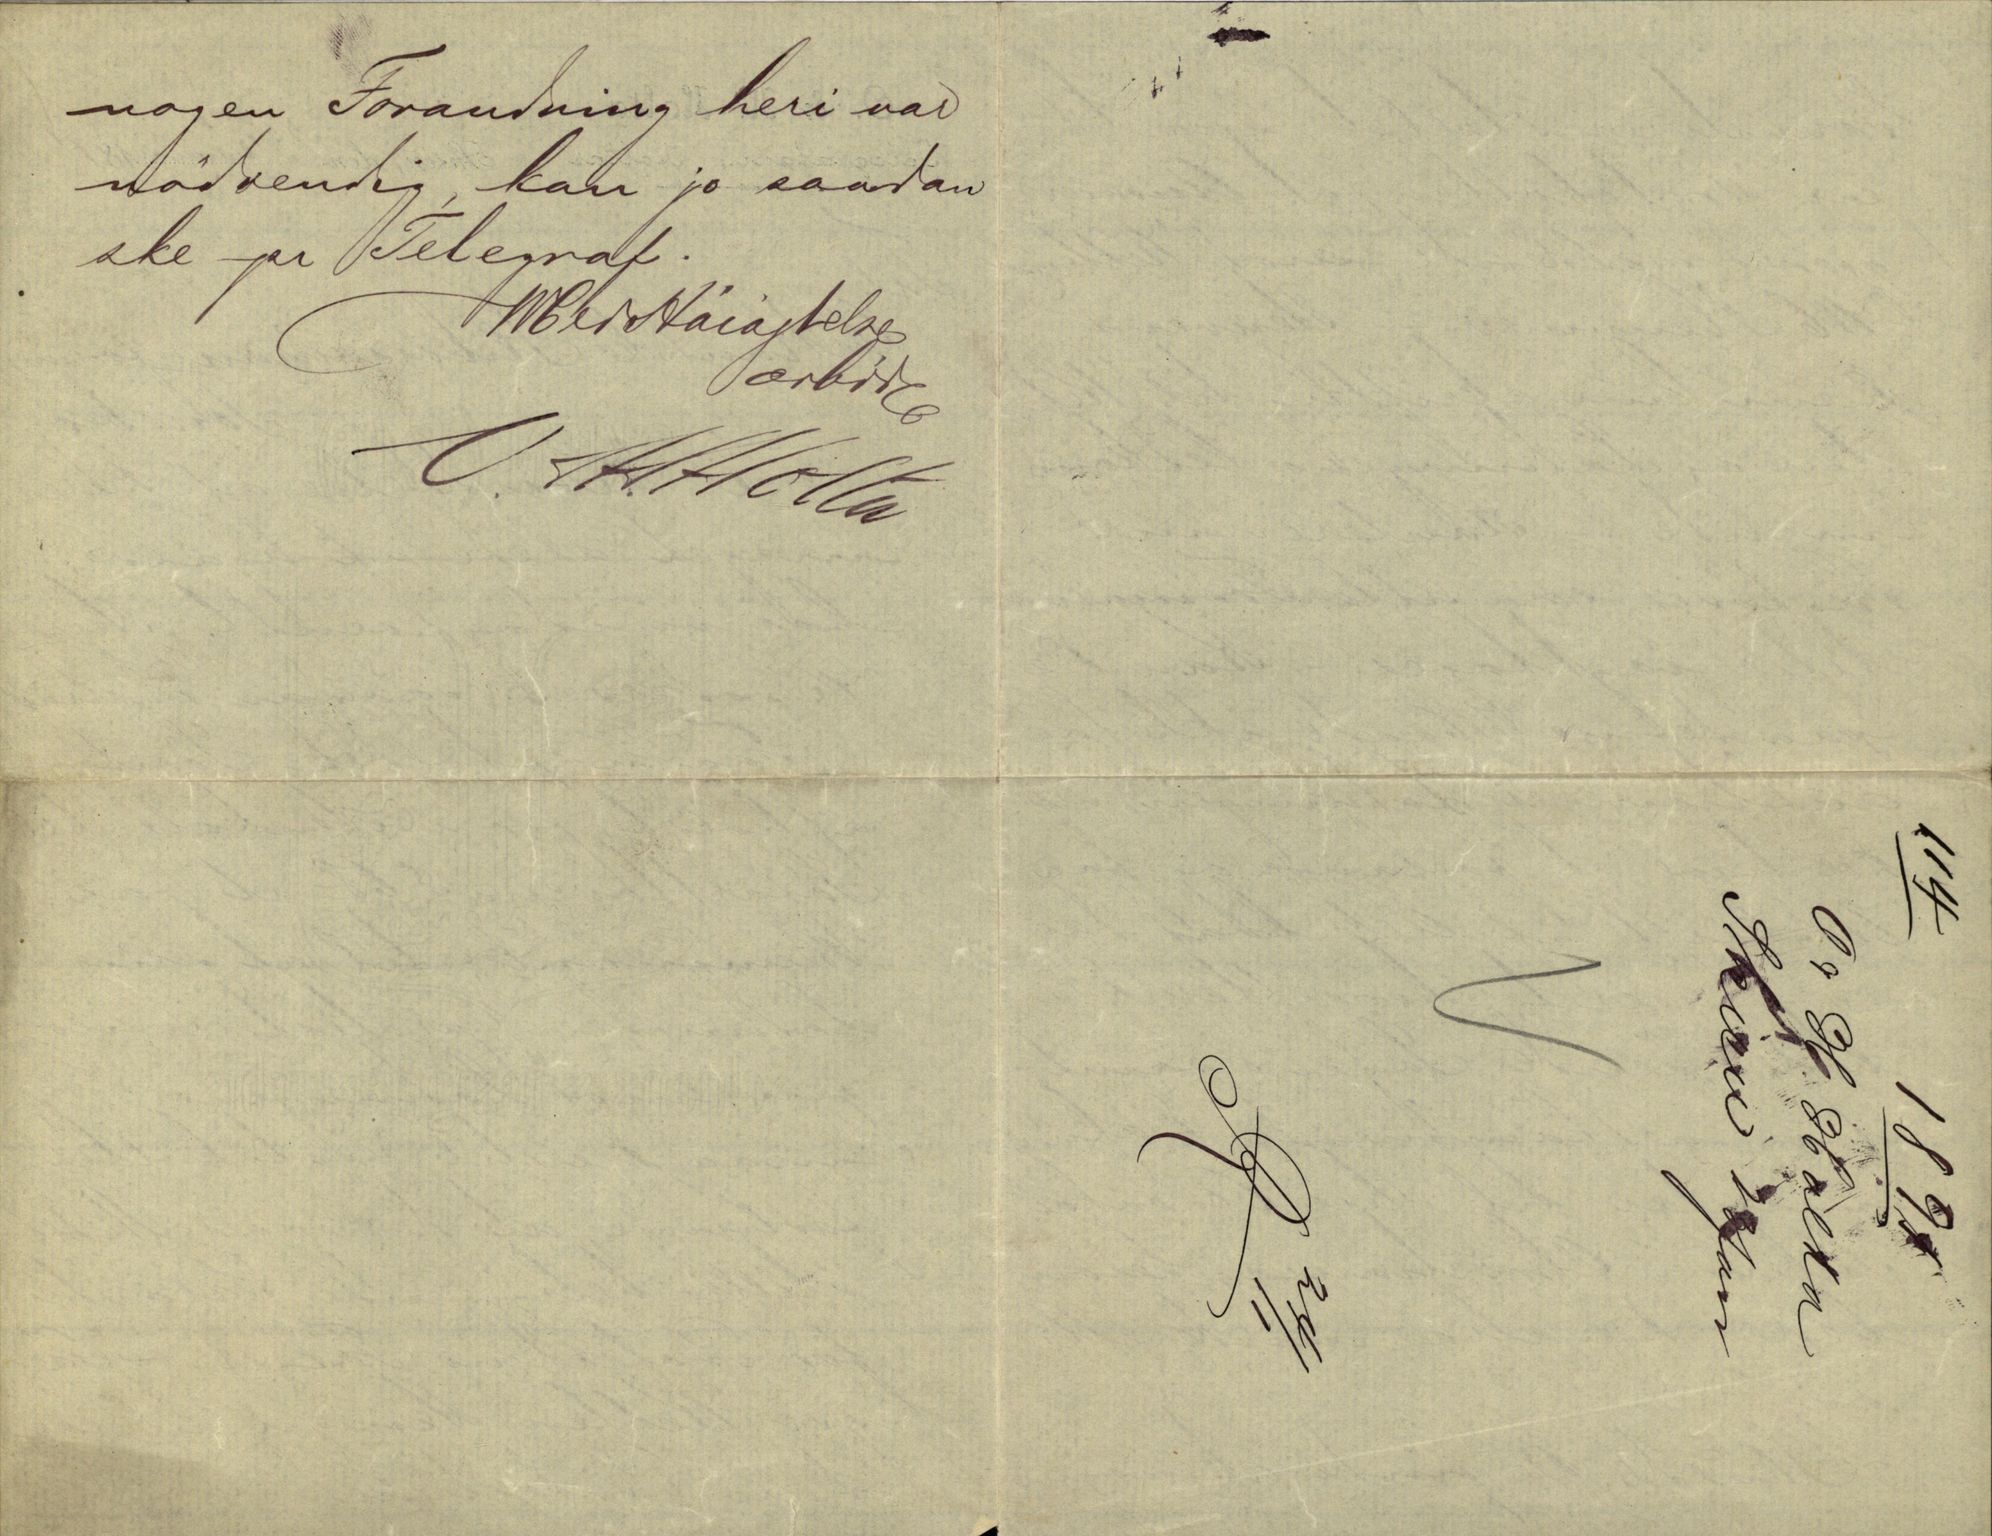 nogen Forandning heri var
nödvendig, kan jo saadan
ske pr Telegraf.
Med Höiagtelse
ærbödg
O. H. Holta
114
1895
O. H. Holta
Skien
24/